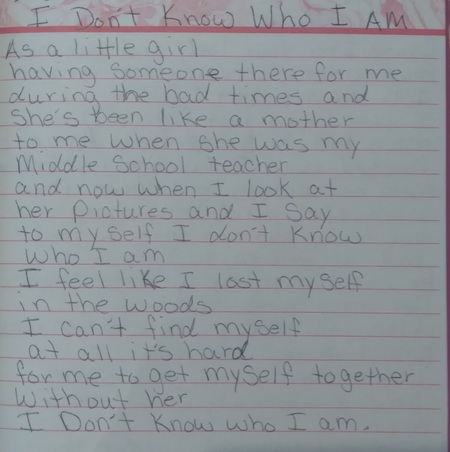 I Don't Know Who I AM
As a little girl
having someone there for me
during the bad times and
She's been like a mother
to me when she was my
Middle School teacher
and now when I look at
her Pictures and I Say
to myself I don't Know
who I am
I feel like I lost myself
in the woods
I can't find myself
at all it's hard
for me to get myself together
Without her
I Don't Know who I am.